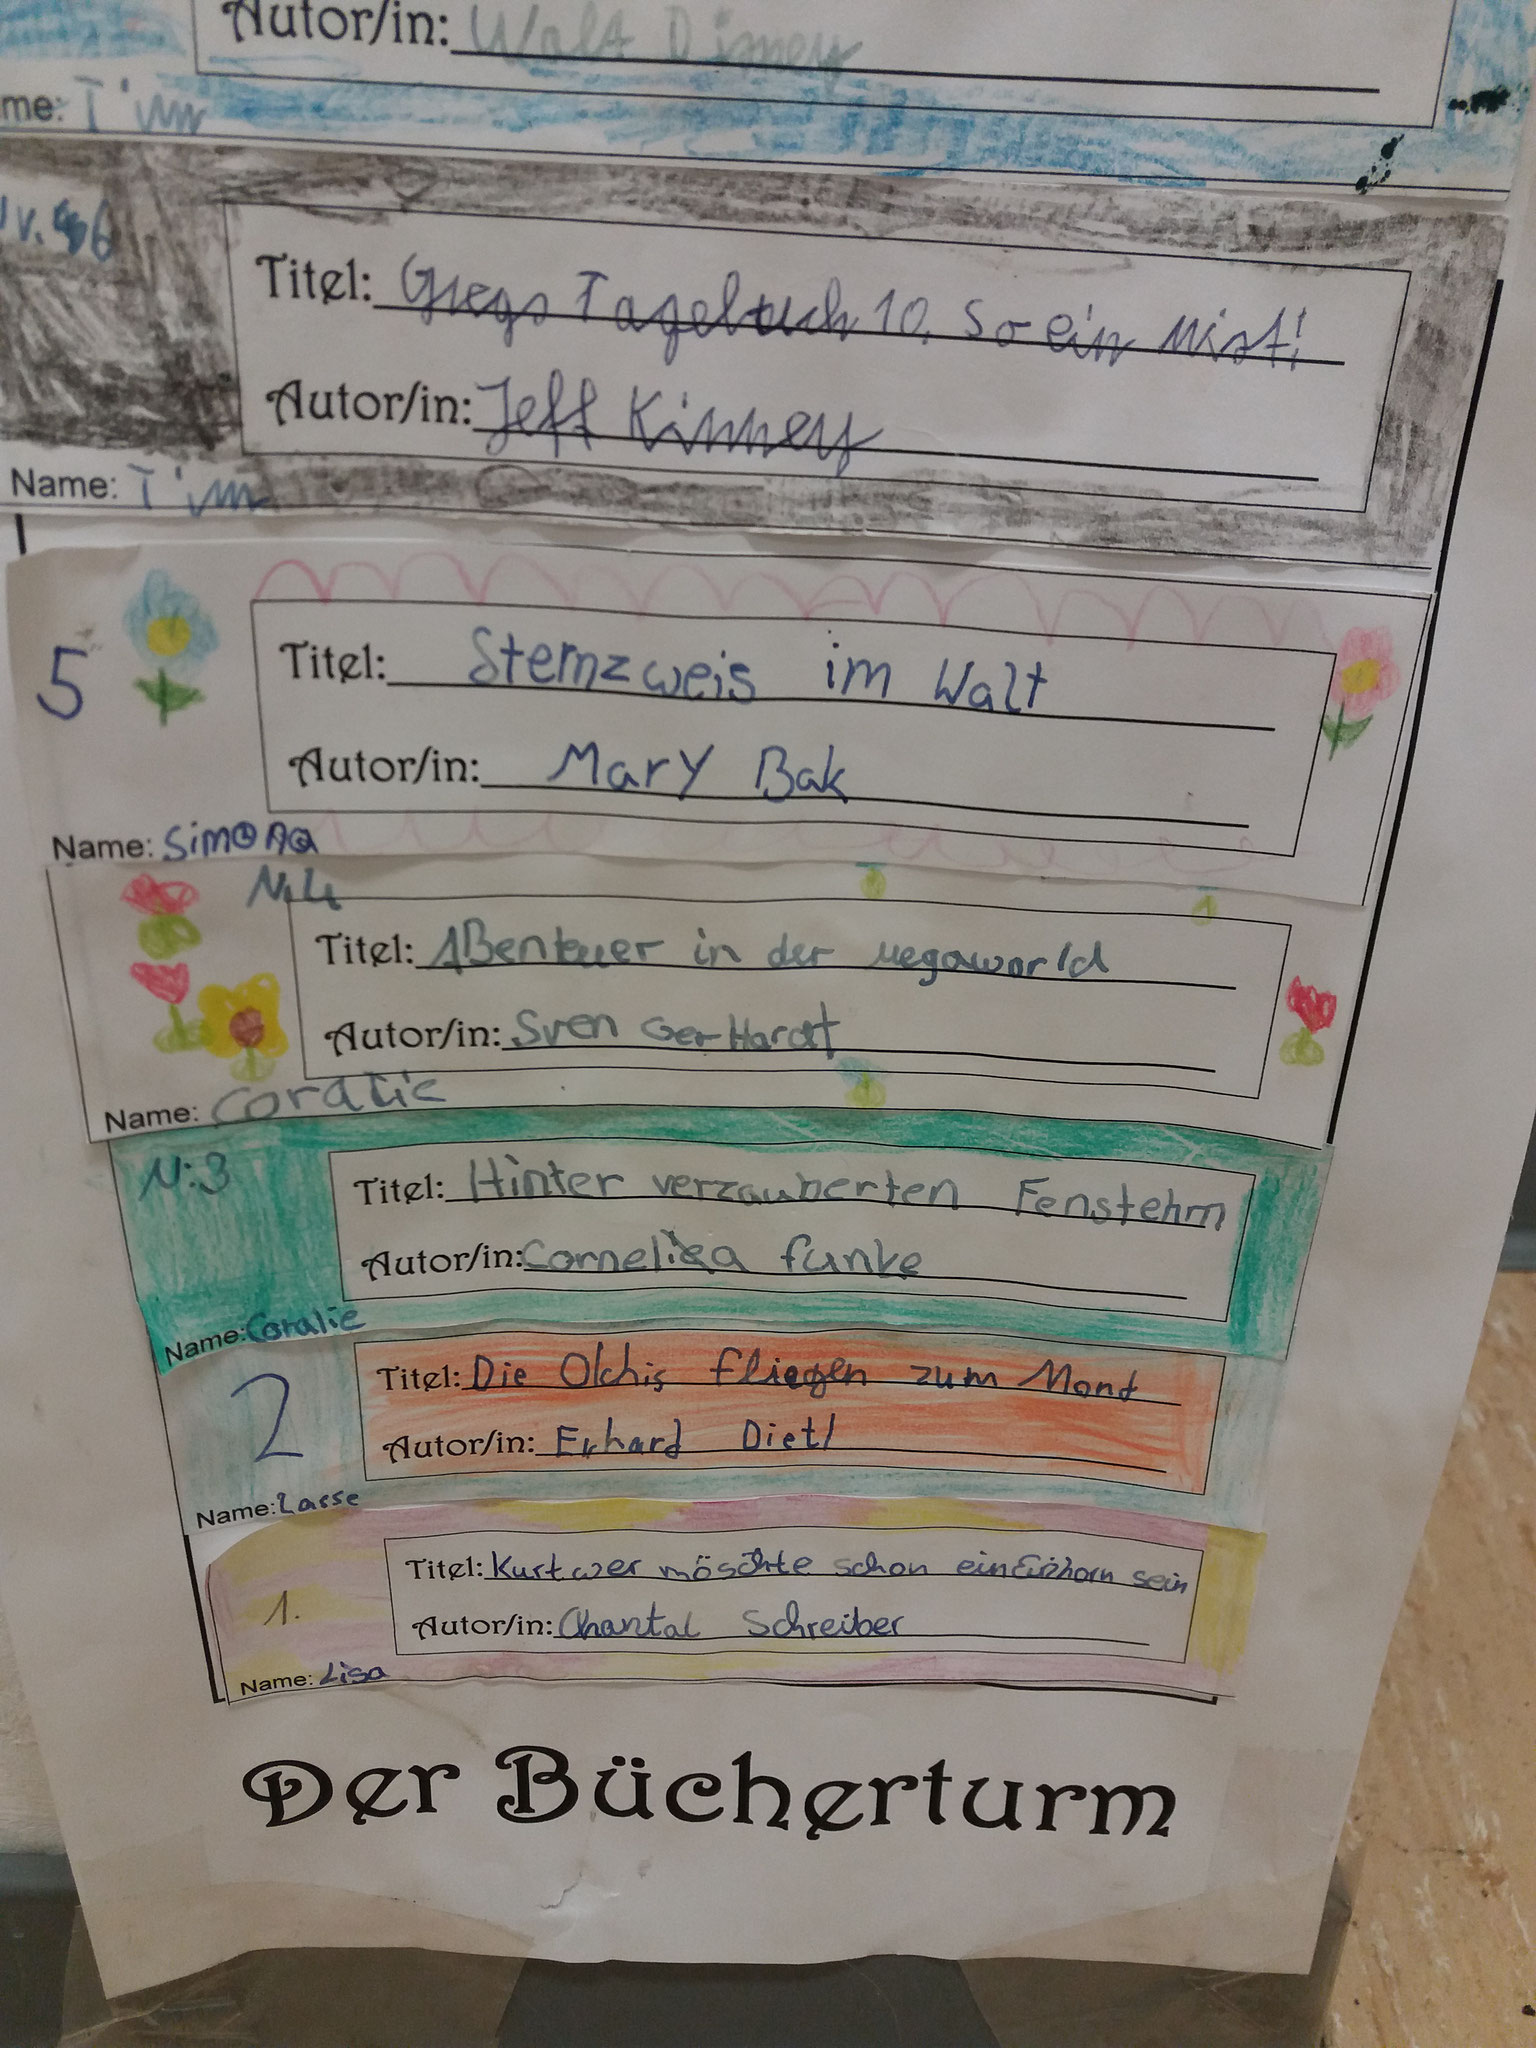 Autor/in: Walt Disney
me: Tim
Titel: Gregs Tagebuch 10. So ein Mist!
Autor/in: Jeff Kinney
Name: Tim
5
Titel: Sternzweis im Walt
Autor/in: Mary Bak
Name: Simona
N.4
Titel: ABenteuer in der Megaworld
Autor/in: Sven GerHardt
Name: Coralie
N:3
Titel: Hinter verzauberten Fenstehrn
Autor/in: Cornelia funke
Name: Coralie
2
Titel: Die Olchis fliegen zum Mond
Autor/in: Erhard Dietl
Name: Lasse
1.
Titel: Kurt wer möschte schon ein Einhorn sein
Autor/in: Chantal Schreiber
Name: Lisa
Der Bücherturm